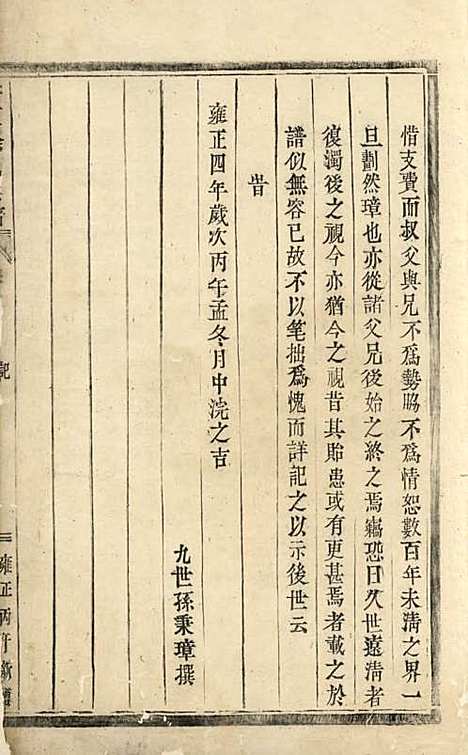 惜支費而叔父與兄不為勢脇不為情恕數百年未清之界一
旦劃然璋也亦從諸父兄後始之終之焉竊恐日久世遠清者
復濁後之視今亦猶今之視昔其貽患或有更甚焉者載之於
譜似無容已故不以笔拙為愧而詳記之以示後世云
昔
雍正四年歲次丙午孟冬月中浣之吉
九世孫秉璋撰
記
雍正丙午新